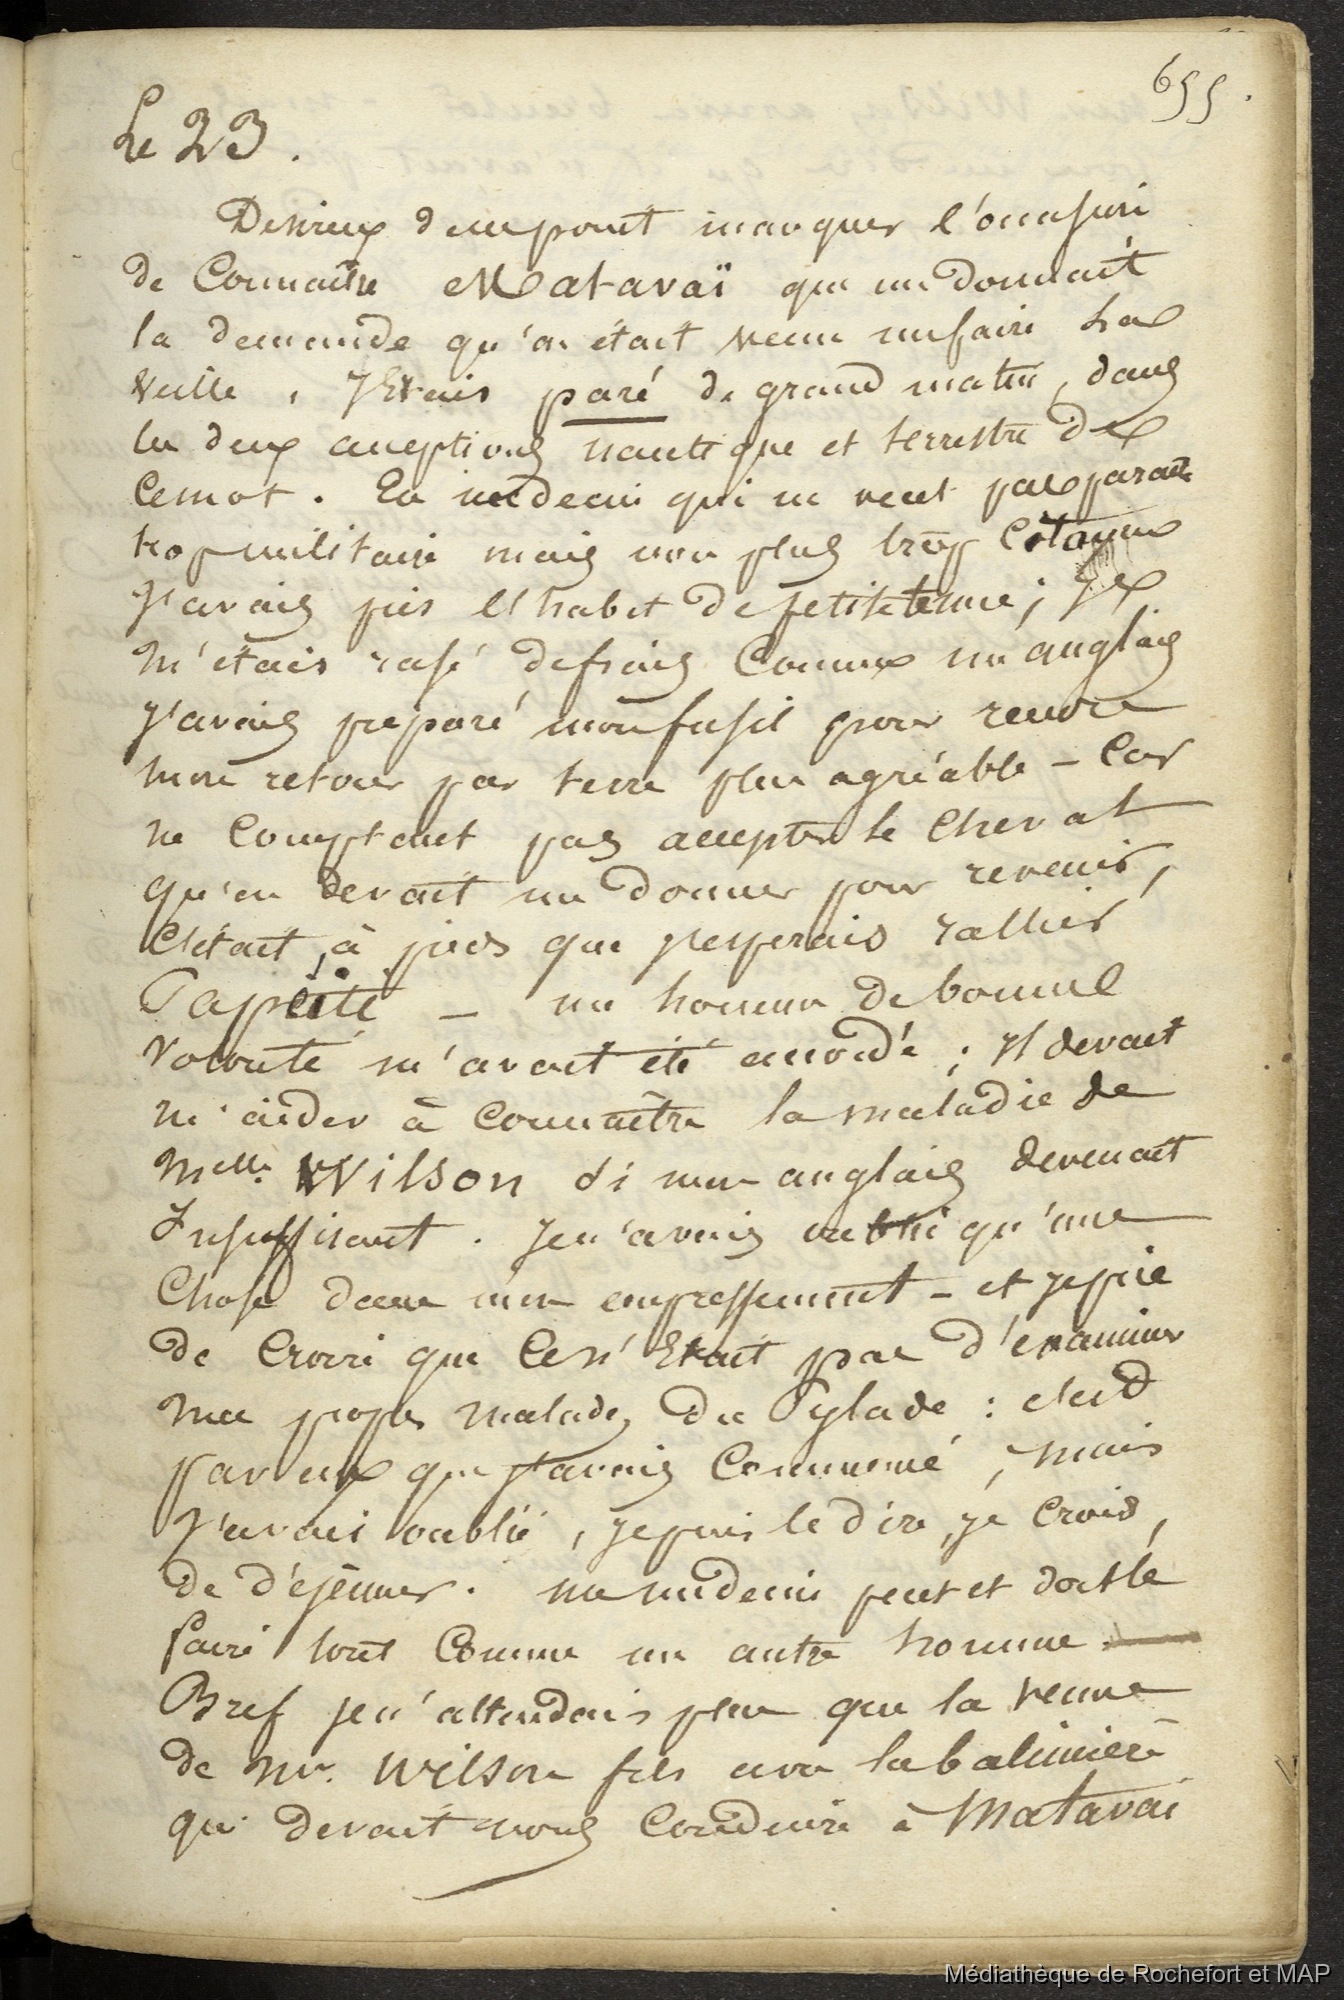 655.
Le 23.
Desireux de ne point manquer l'occasion
de Connaître Matavaï que me donnait
la demande qu'on était venu me faire la
veille, J'Etais paré de grand matin, dans
les deux acceptions nautique et terrestre de
Ce mot. En médecin qui ne veut pas paraitre
trop militaire mais non plus trop Citoyen
J'avais pris l'habit de petite tenue; Je
m'étais rasé de frais Comme un anglais
J'avais préparé mon fusil pour rendre
mon retour par terre plus agréable - Car
ne Comptant pas accepter le Cheval
qu'on devait me donner pour revenir,
C'était à pied que j'esperais rallier
Papéïté - un homme de bonne
volonté m'avait été accordé; Il devait
m'aider à Connaître la maladie de
Melle. Wilson si mon anglais devenait
Insuffisant. Je n'avais oublié qu'une
Chose dans mon empressement - et je prie
de Croire que Ce n'Etait pas d'examiner
mes propres malades du Pylade: c'est
par eux que j'avais Commencé, mais
J'avais oublié, je puis le dire, je Crois,
de déjêuner. un médecin peut et doit le
faire tout Comme un autre homme -
Bref je n'attendais plus que la venue
de Mr. Wilson fils avec la baleinière
qui devait nous Conduire à Matavaï
Médiathèque de Rochefort et MAP